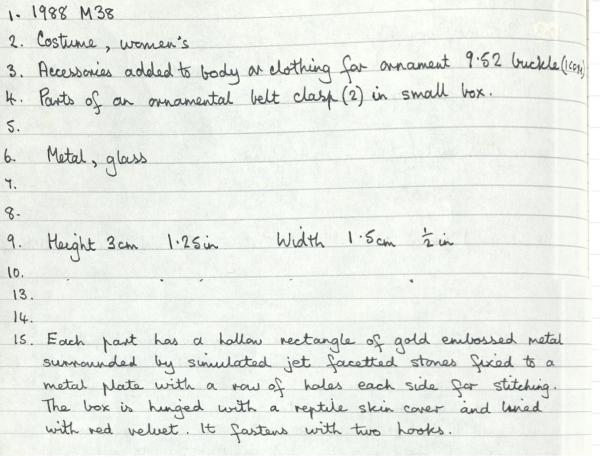 1. 1988 M38
2. Costume, women's
3. Accessories added to body or clothing for ornament 9.52 buckle (ICOM)
4. Parts of an ornamental belt clasp (2) in small box.
5.
6. Metal, glass
7.
8.
9. Height 3cm 1.25in Width 1.5cm ½ in
10.
13.
14.
15. Each part has a hollow rectangle of gold embossed metal
surrounded by simulated jet facetted stones fixed to a
metal plate with a row of holes each side for stitching.
The box is hinged with a reptile skin cover and lined
with red velvet. It fastens with two hooks.